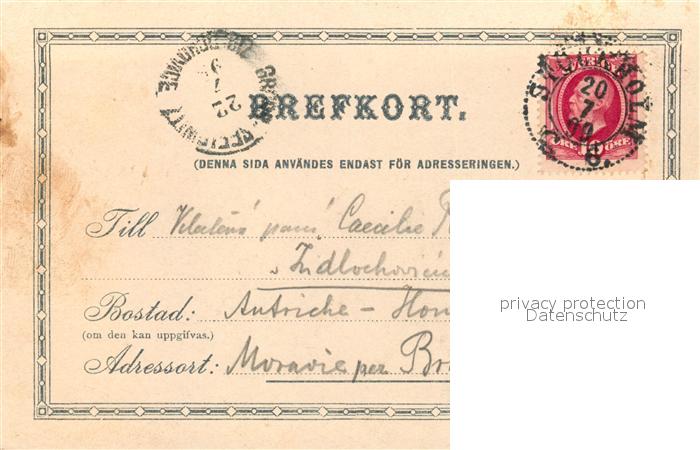 BREFKORT.
(DENNA SIDA ANVÄNDES ENDAST FÖR ADRESSERINGEN.)
STOCKHOLM
20
7
22
7
10
ÖRE ÖRE
Till Caecilie
v Židlochovic
Bostad: Autriche – Hon
(om den kan uppgifvas.)
Adressort: Moravie per Br
privacy protection
Datenschutz